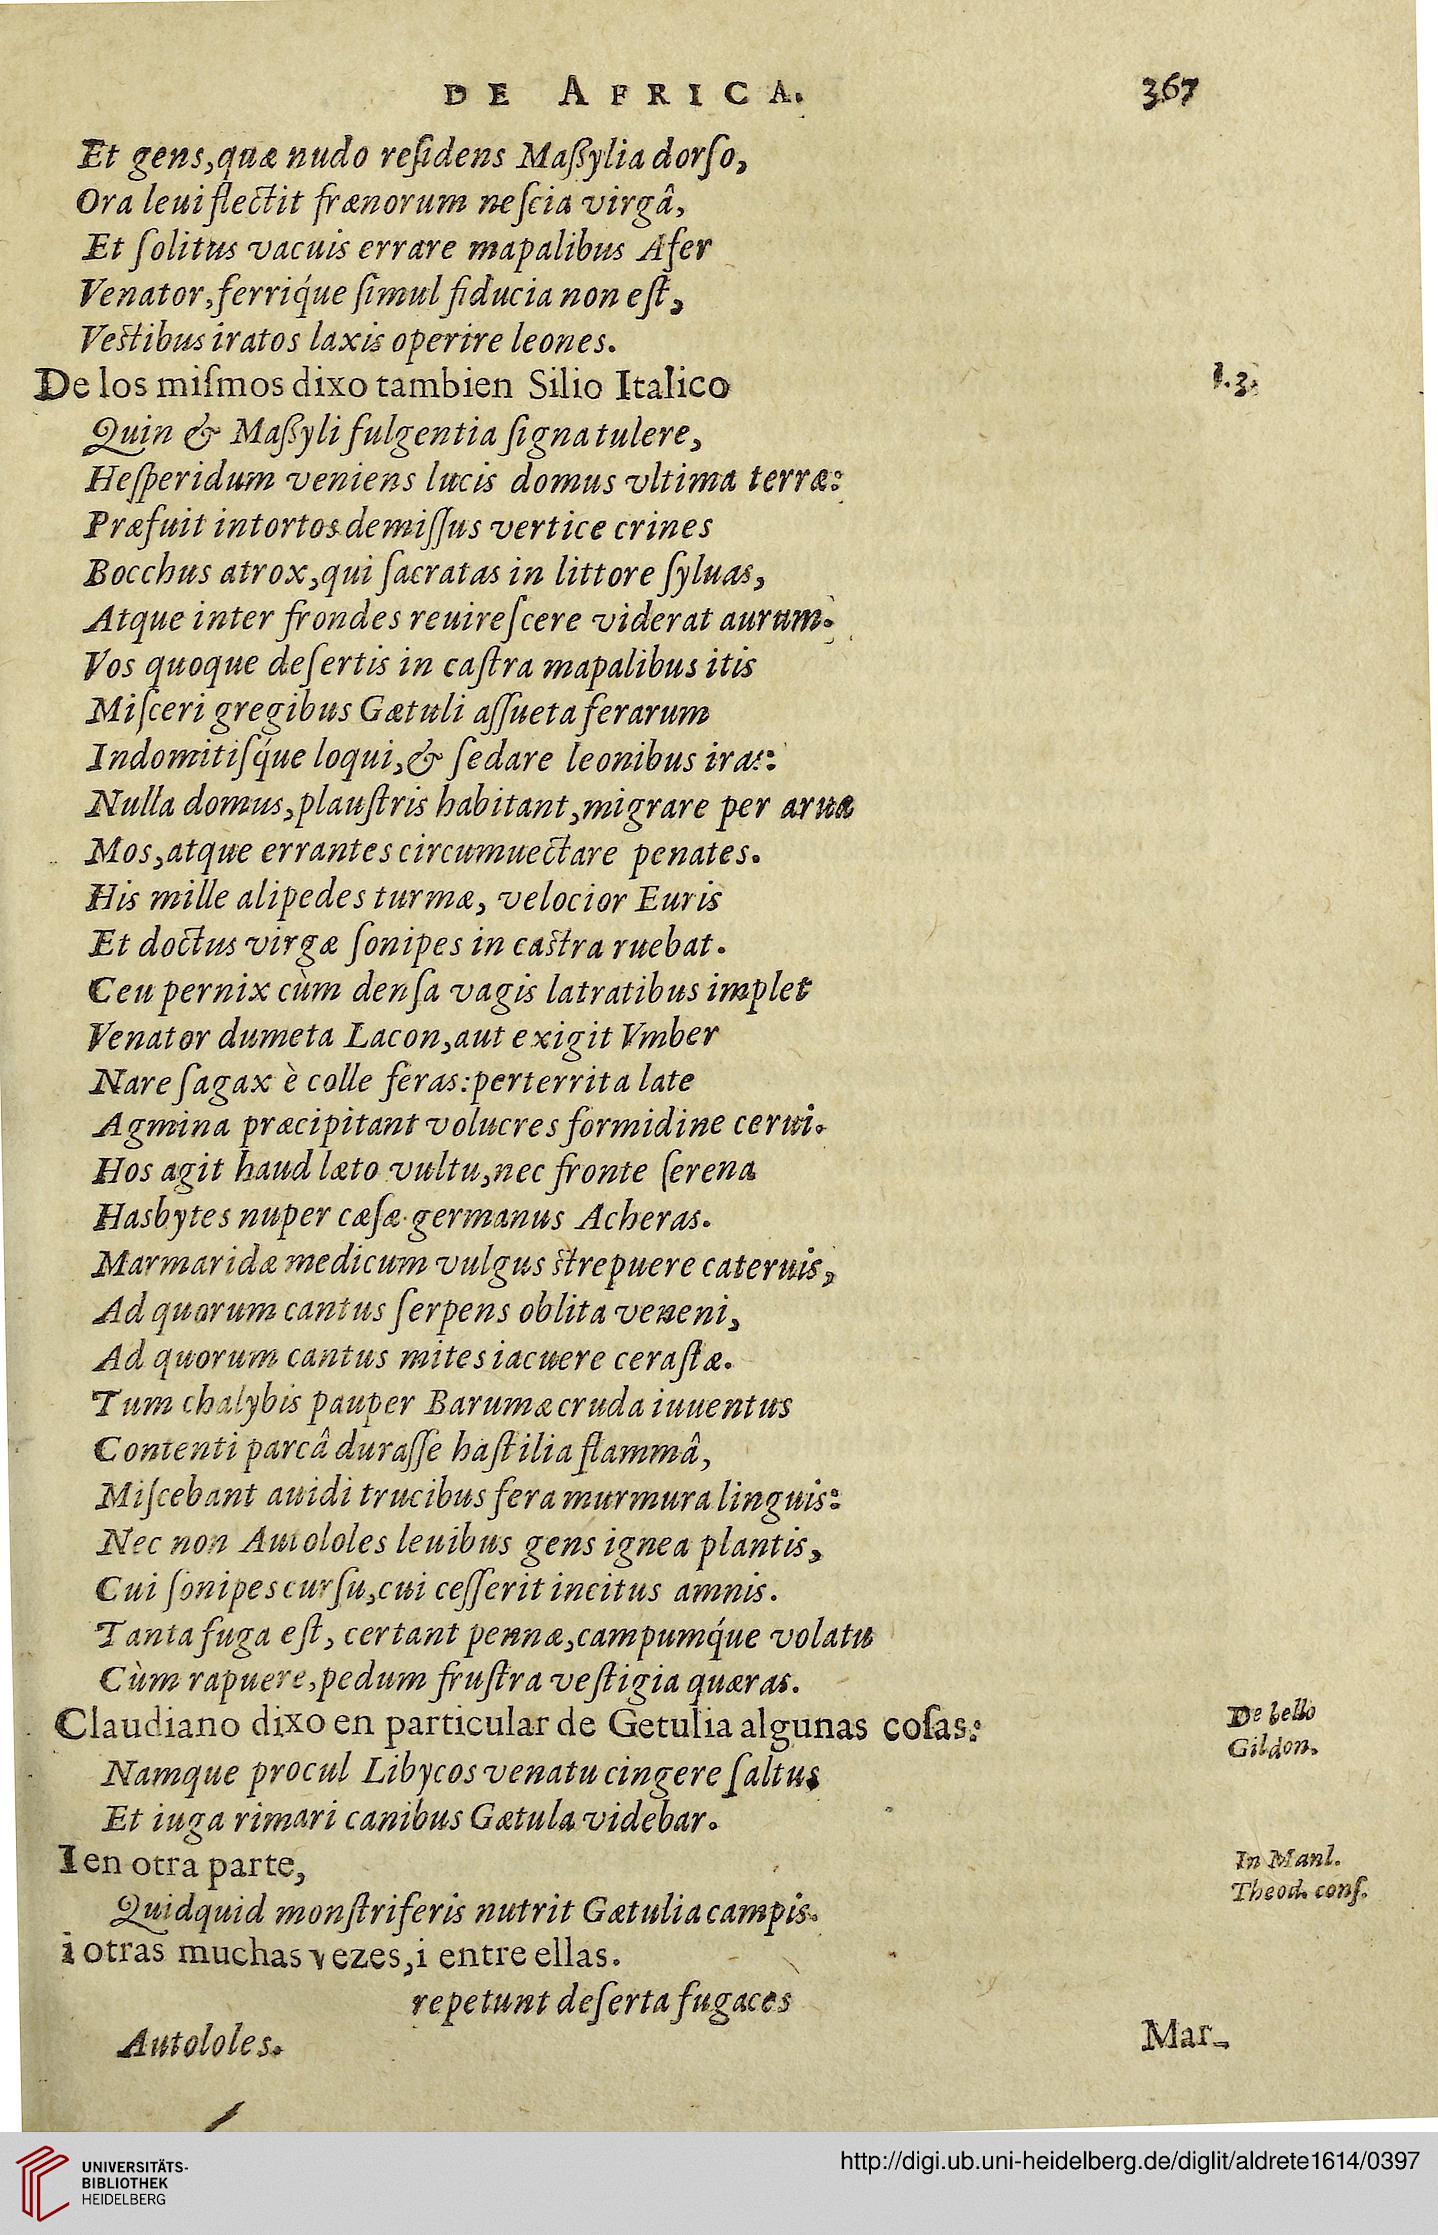 DE AFRICA. 367
Et gens,quæ nudo reſidens Maßylia dorſo,
Ora leui flectit frænorum neſcia virgâ,
Et ſolitus vacuis errare mapalibus Afer
Venator,ferriq́ue ſimul fiducia non eſt,
Veſtibus iratos laxis operire leones.
De los miſmos dixo tambien Silio Italico l.3.
Quin & Maßyli fulgentia ſigna tulere,
Heſperidum veniens lucis domus vltima terræ:
Præfuit intortos demiſſus vertice crines
Bocchus atrox,qui ſacratas in littore ſyluas,
Atque inter frondes reuireſcere viderat aurum.
Vos quoque deſertis in caſtra mapalibus itis
Miſceri gregibus Gætuli aſſueta ferarum
Indomitiſq́ue loqui,& ſedare leonibus iras:
Nulla domus,plauſtris habitant,migrare per arua
Mos,atque errantes circumuectare penates.
His mille alipedes turmæ, velocior Euris
Et doctus virgæ ſonipes in caſtra ruebat.
Ceu pernix cùm denſa vagis latratibus implet
Venator dumeta Lacon,aut exigit Vmber
Nare ſagax è colle feras:perterrita late
Agmina præcipitant volucres formidine cerui.
Hos agit haud læto vultu,nec fronte ſerena
Hasbytes nuper cæſæ germanus Acheras.
Marmaridæ medicum vulgus ſtrepuere cateruis,
Ad quorum cantus ſerpens oblita veneni,
Ad quorum cantus mites iacuere ceraſtæ.
Tum chalybis pauper Barumæ cruda iuuentus
Contenti parcâ duraſſe haſtilia flammâ,
Miſcebant auidi trucibus fera murmura linguis:
Nec non Autololes leuibus gens ignea plantis,
Cui ſonipes curſu,cui ceſſerit incitus amnis.
Tanta fuga eſt, certant pennæ,campumq́ue volatu
Cùm rapuere,pedum fruſtra veſtigia quæras.
Claudiano dixo en particular de Getulia algunas coſas: De bello
Gildon.
Namque procul Libycos venatu cingere ſaltus
Et iuga rimari canibus Gætula videbar.
I en otra parte, In Manl.
Theod. conſ.
Quidquid monſtriferis nutrit Gætulia campis.
i otras muchas vezes,i entre ellas.
repetunt deſerta fugaces
Autololes.
Mar-
UNIVERSITÄTS-
BIBLIOTHEK
HEIDELBERG
http://digi.ub.uni-heidelberg.de/diglit/aldrete1614/0397